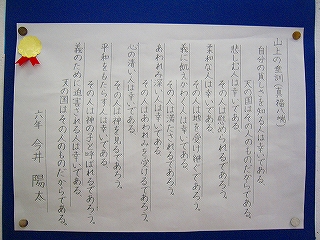 山上の垂訓(真福八端)
自分の貧しさを知る人は幸いである
天の国はその人のものだからである。
悲しむ人は幸いである。
その人は慰められるであろう。
柔和な人は幸いである。
その人は地を受け継ぐであろう。
義に飢えかわく人は幸いである。
その人は満たされるであろう。
あわれみ深い人は幸いである
その人はあわれみを受けるであろう。
心の清い人は幸いである
その人は神を見るであろう。
平和をもたらす人は幸いである
その人は神の子と呼ばれるであろう。
義のために迫害される人は幸いである。
天の国はその人のものだからである。
六年 今井 陽太